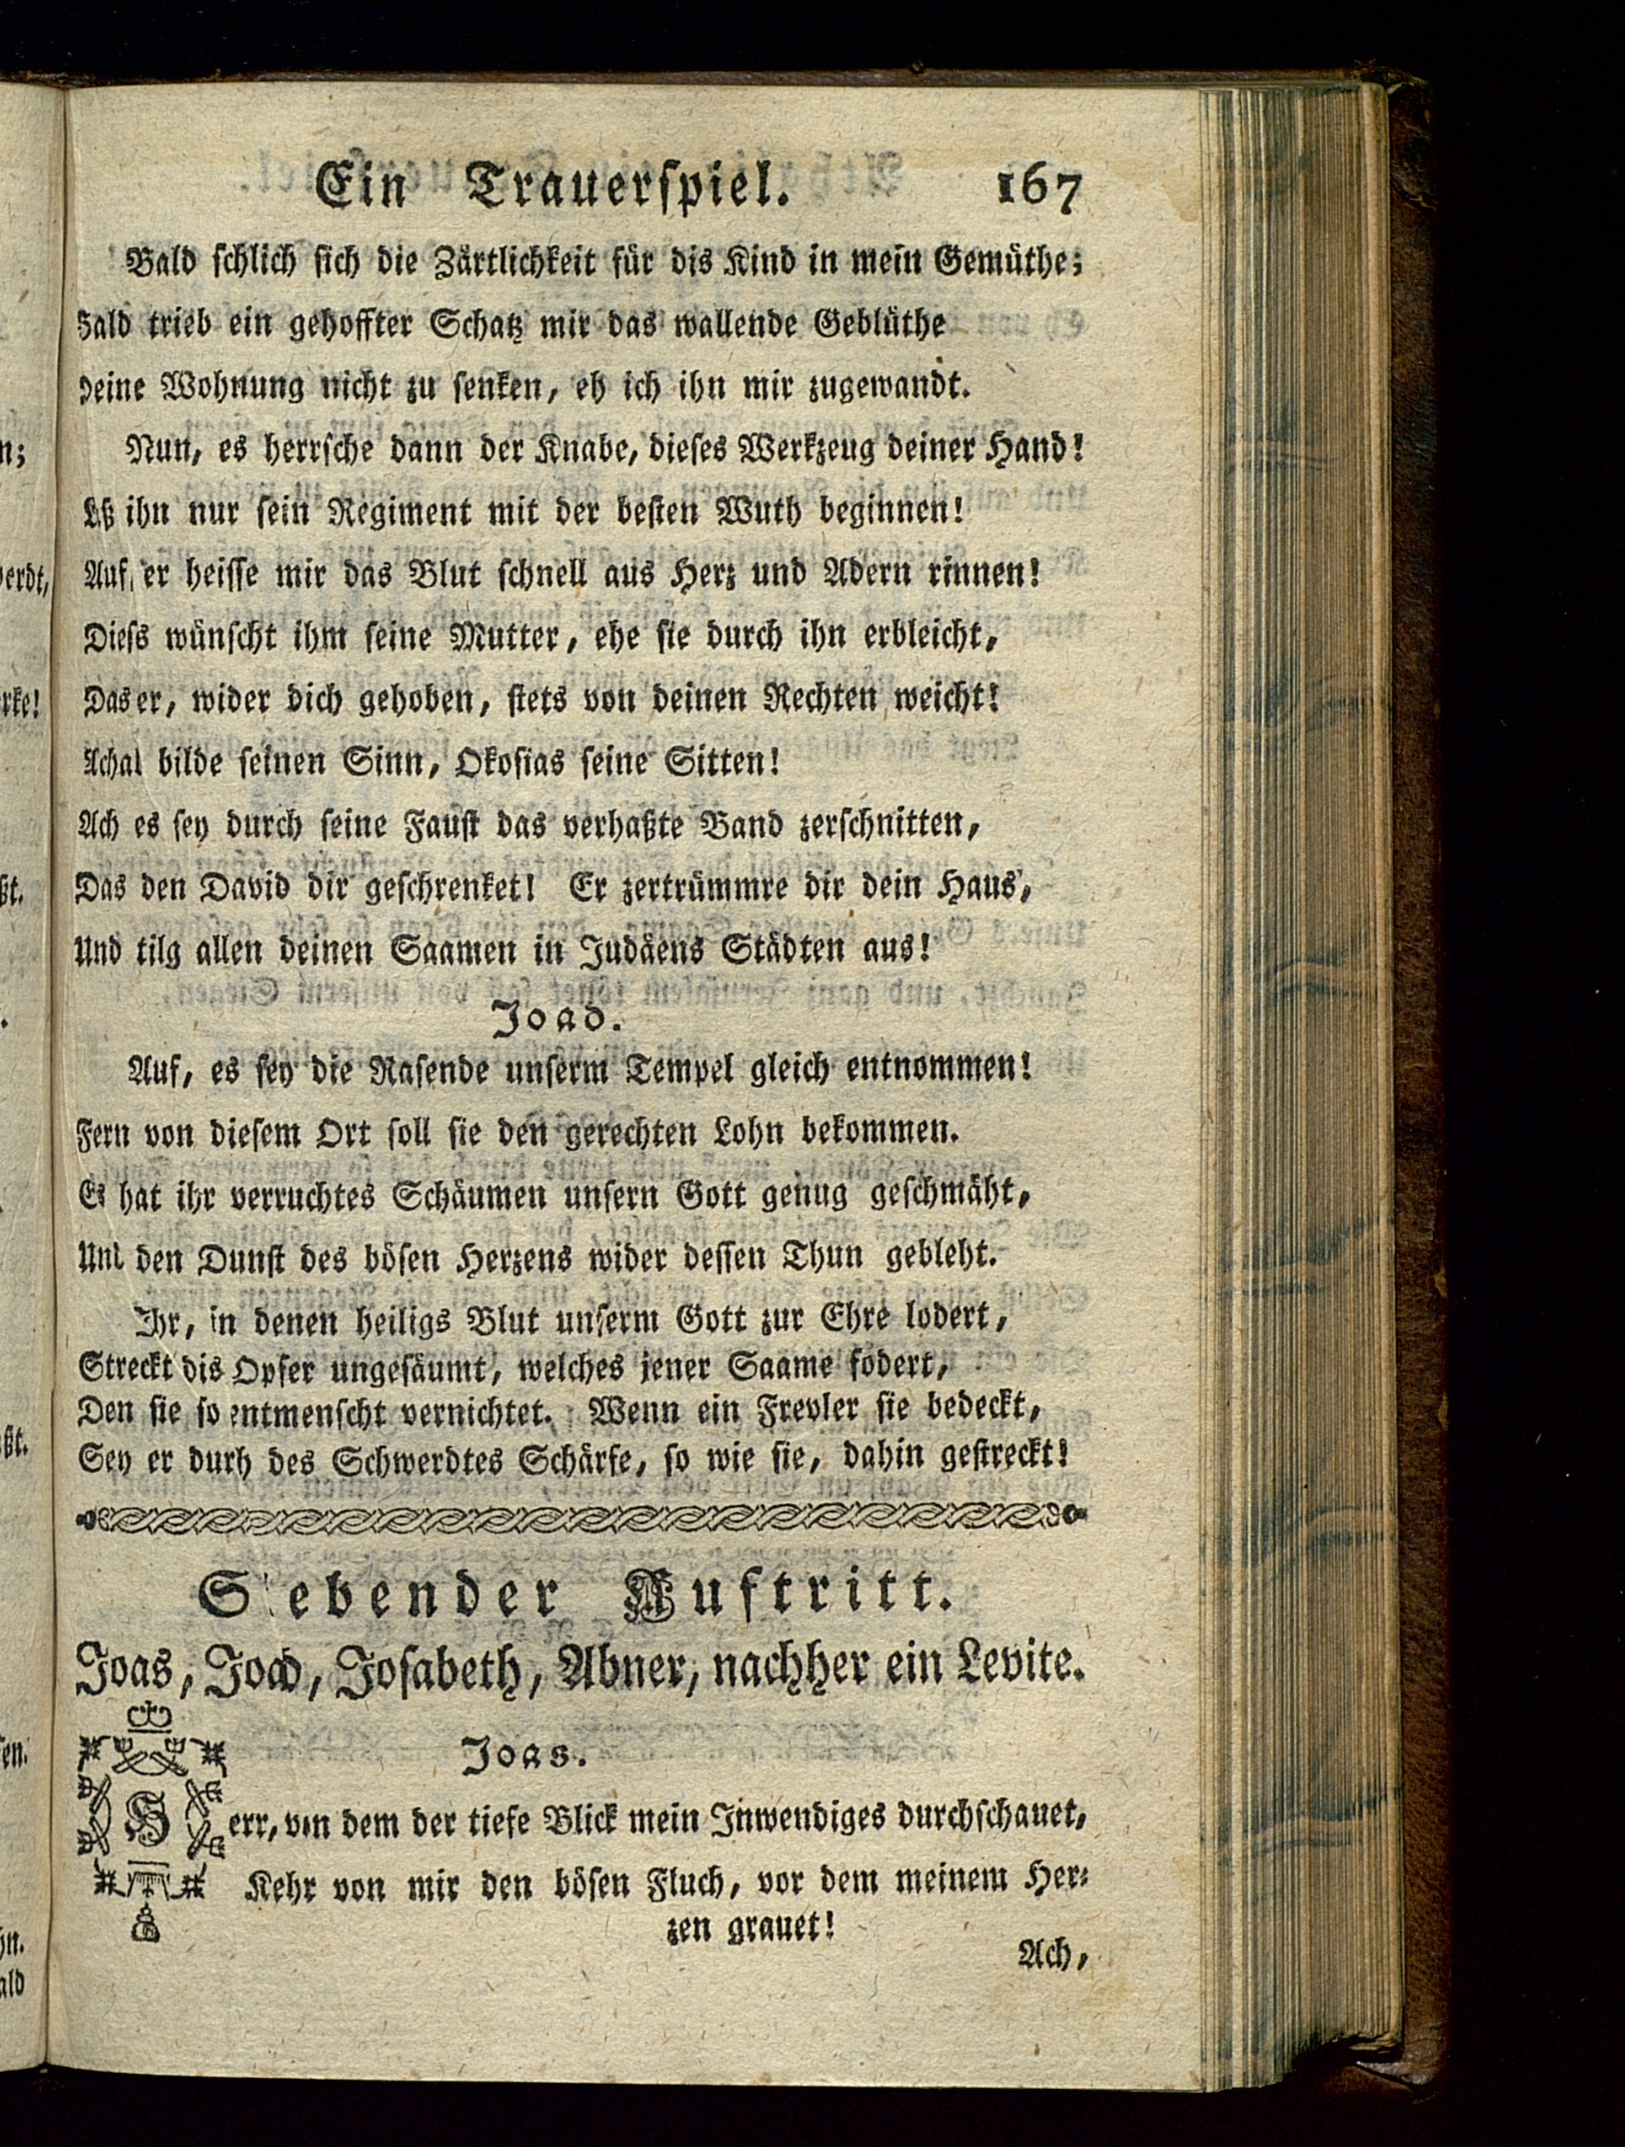 Ein Trauerſpiel. 167
Bald ſchlich ſich die Zärtlichkeit für dis Kind in mein Gemüthe;
Bald trieb ein gehoffter Schatz mir das wallende Geblüthe
Deine Wohnung nicht zu ſenken, eh ich ihn mir zugewandt.
Nun, es herrſche dann der Knabe, dieſes Werkzeug deiner Hand!
Laß ihn nur ſein Regiment mit der beſten Wuth beginnen!
Auf, er heiſſe mir das Blut ſchnell aus Herz und Adern rinnen!
Dieſs wünſcht ihm ſeine Mutter, ehe ſie durch ihn erbleicht,
Das er, wider dich gehoben, ſtets von deinen Rechten weicht!
Achab bilde ſeinen Sinn, Okoſias ſeine Sitten!
Ach es ſey durch ſeine Fauſt das verhaßte Band zerſchnitten,
Das den David dir geſchrenket! Er zertrümmre dir dein Haus,
Und tilg allen deinen Saamen in Judäens Städten aus!
Joad.
Auf, es ſey die Raſende unſerm Tempel gleich entnommen!
Fern von dieſem Ort ſoll ſie den gerechten Lohn bekommen.
Es hat ihr verruchtes Schäumen unſern Gott genug geſchmäht,
Und den Dunſt des böſen Herzens wider deſſen Thun gebleht.
Ihr, in denen heiligs Blut unſerm Gott zur Ehre lodert,
Streckt dis Opfer ungeſäumt, welches jener Saame fodert,
Den ſie ſo entmenſcht vernichtet. Wenn ein Frevler ſie bedeckt,
Sey er durh des Schwerdtes Schärfe, ſo wie ſie, dahin geſtreckt!
Siebender Auftritt.
Joas, Joad, Joſabeth, Abner, nachher ein Levite.
Joas.
Herr, von dem der tiefe Blick mein Inwendiges durchſchauet,
Kehr von mir den böſen Fluch, vor dem meinem Her-
zen grauet!
Ach,